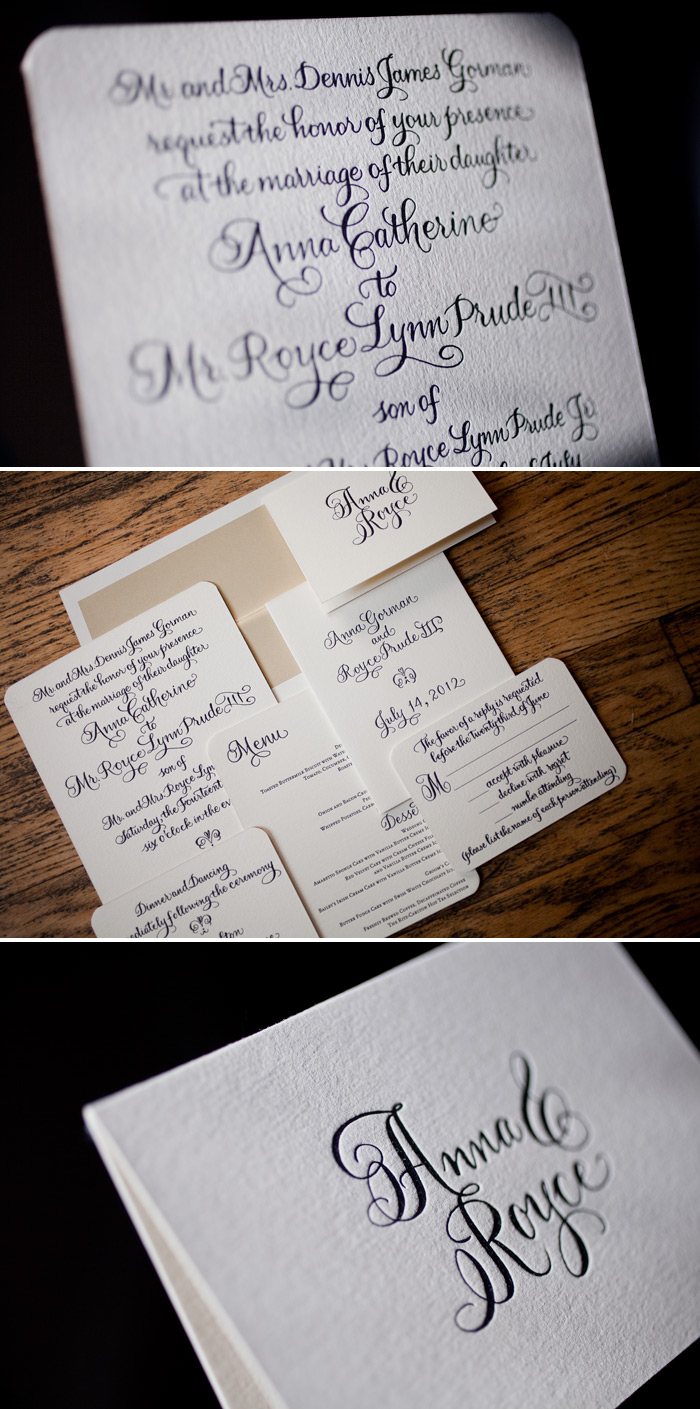 Mr. and Mrs. Dennis James Gorman
request the honor of your presence
at the marriage of their daughter
Anna Catherine
to
Mr. Royce Lynn Prude III
son of
Mrs. Royce Lynn Prude Jr.
of July
Anna &
Royce
Mr. and Mrs. Dennis James Gorman
request the honor of your presence
at the marriage of their daughter
Anna Catherine
to
Mr. Royce Lynn Prude III
son of
Mr. and Mrs. Royce Lyn
Saturday, the Fourteent
six o'clock in the ev
Dinner and Dancing
ediately following the ceremony
lton
Menu
Toasted Buttermilk Biscuit with
Tomato, Cucumber,
Onion and Bacon
Whipped Potatoes,
Desse
Wedding
Amaretto Sponge Cake with Vanilla Butter Creme
Red Velvet Cake with Cream Cheese
Bailey's Irish Cream Cake with Vanilla Butter Creme
Groom's Cake
Butter Fudge Cake with Swiss White Chocolate
Freshly Brewed Coffee, Decaffeinated Coffee
The Ritz-Carlton Hot Tea Selection
Anna Gorman
and
Royce Prude III
July 14, 2012
The favor of a reply is requested
before the twenty-third of June
M
accept with pleasure
decline with regret
number attending
(please list the name of each person attending)
Anna &
Royce